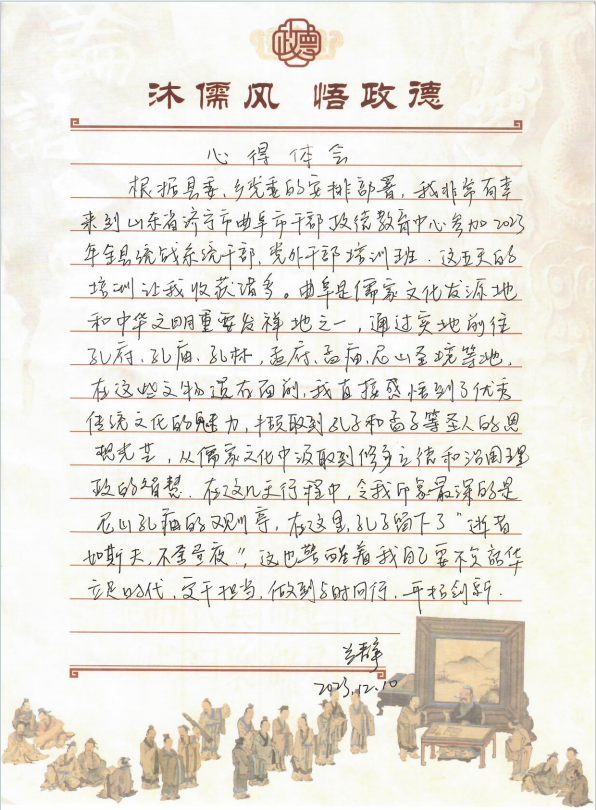 政德
論語
沐儒风 悟政德
心得体会
根据县委、乡党委的安排部署，我非常有幸
来到山东省济宁市曲阜市干部政德教育中心参加2023
年全县统战系统干部、党外干部培训班．这五天的
培训让我收获诸多。曲阜是儒家文化发源地
和中华文明重要发祥地之一，通过实地前往
孔府、孔庙、孔林，孟府、孟庙、尼山圣境等地，
在这些文物遗存面前，我直接感悟到了优秀
传统文化的魅力，撷取到孔子和孟子等圣人的思
想光芒，从儒家文化中汲取到修身立德和治国理
政的智慧．在这几天行程中，令我印象最深的是
尼山孔庙的观川亭，在这里，孔子留下了“逝者
如斯夫，不舍昼夜”，这也警醒着我自己要不负韶华
立足时代，实干担当，做到与时同行，开拓创新．
2023.12.10